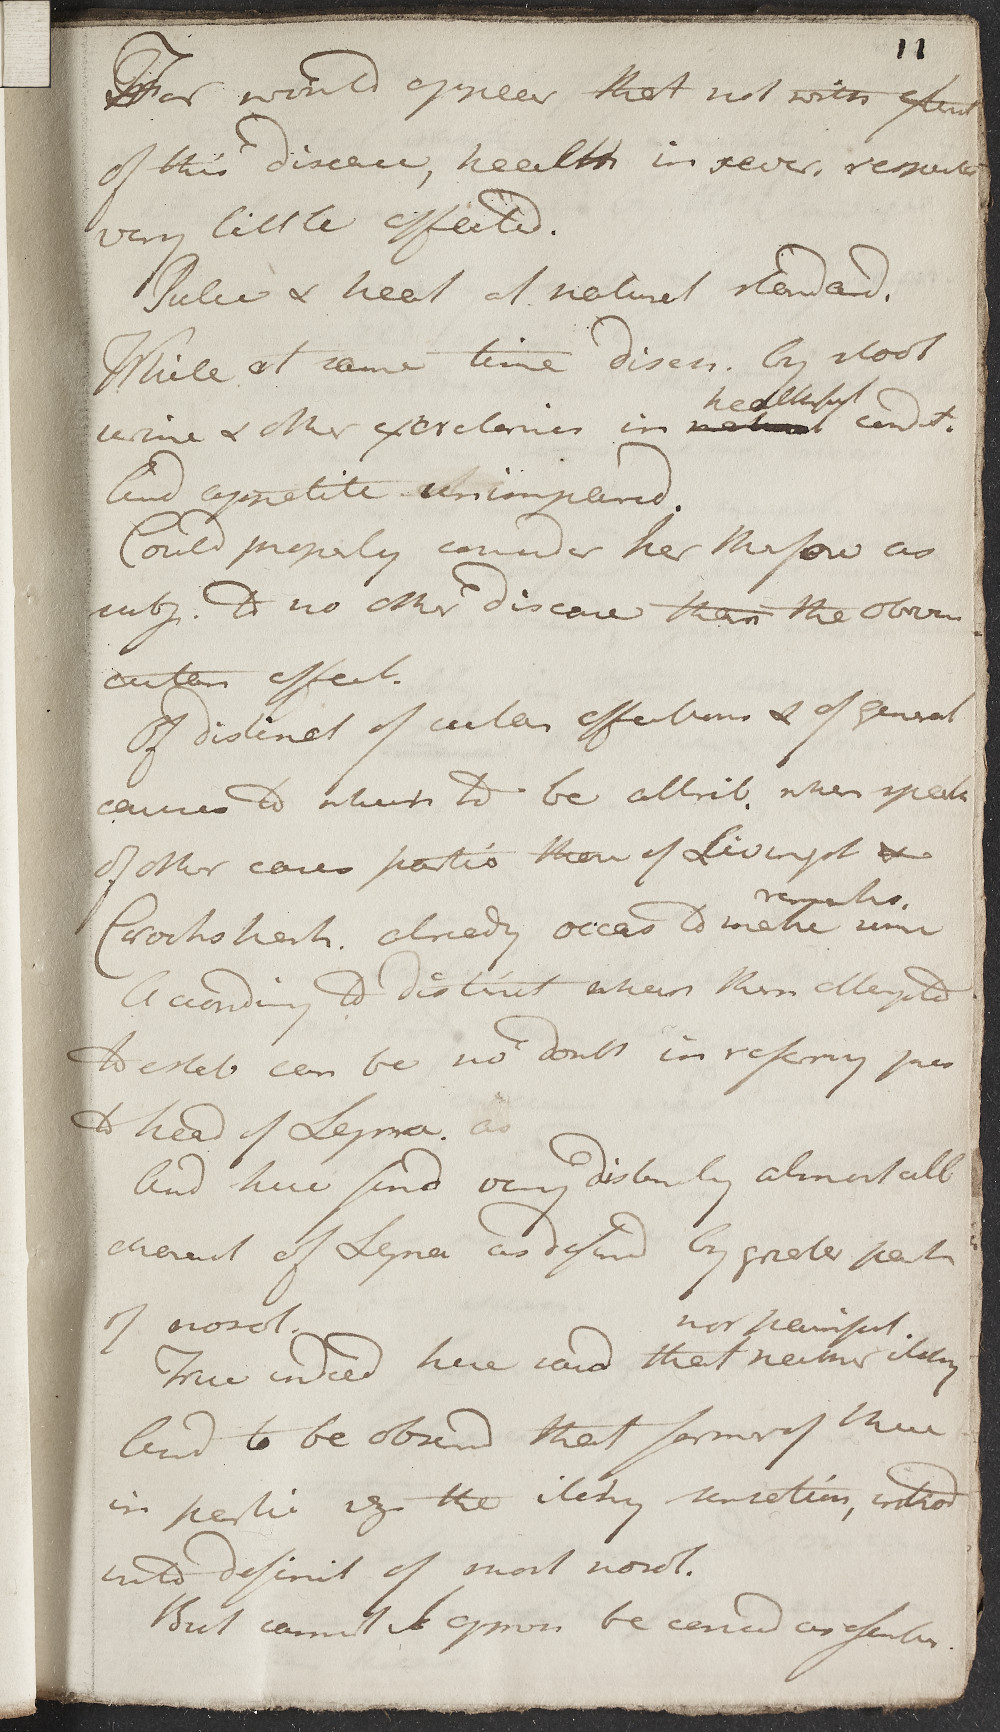 11
For would appear that not with extent
of this disease, health in sever. respects
very little affected.
Pulse & heat at natural standard.
While at same time disch. by stool
healthful
urine & other excretories in natural condit.
And appetite unimpaired.
Could properly consider her therefore as
subj. to no other disease than the obvious
cutan affect.
Of distinct of cutan affections & of general
causes to which to be attrib. when speak
of other cases partic of Livingst &
remarks.
Crookshank. already occas to make some
According to distinct when then attempted
to estab can be no doubt in referring pres
to head of Lepra. as
And here find very distinctly almost all
charact of Lepra as defined by greater part
of nosol.
nor painful.
True indeed here said that neither itchy
And to be observd that former of these
in partic vz the itchy sensation, introd
into definit of most nosol.
But cannot be considd as essential.